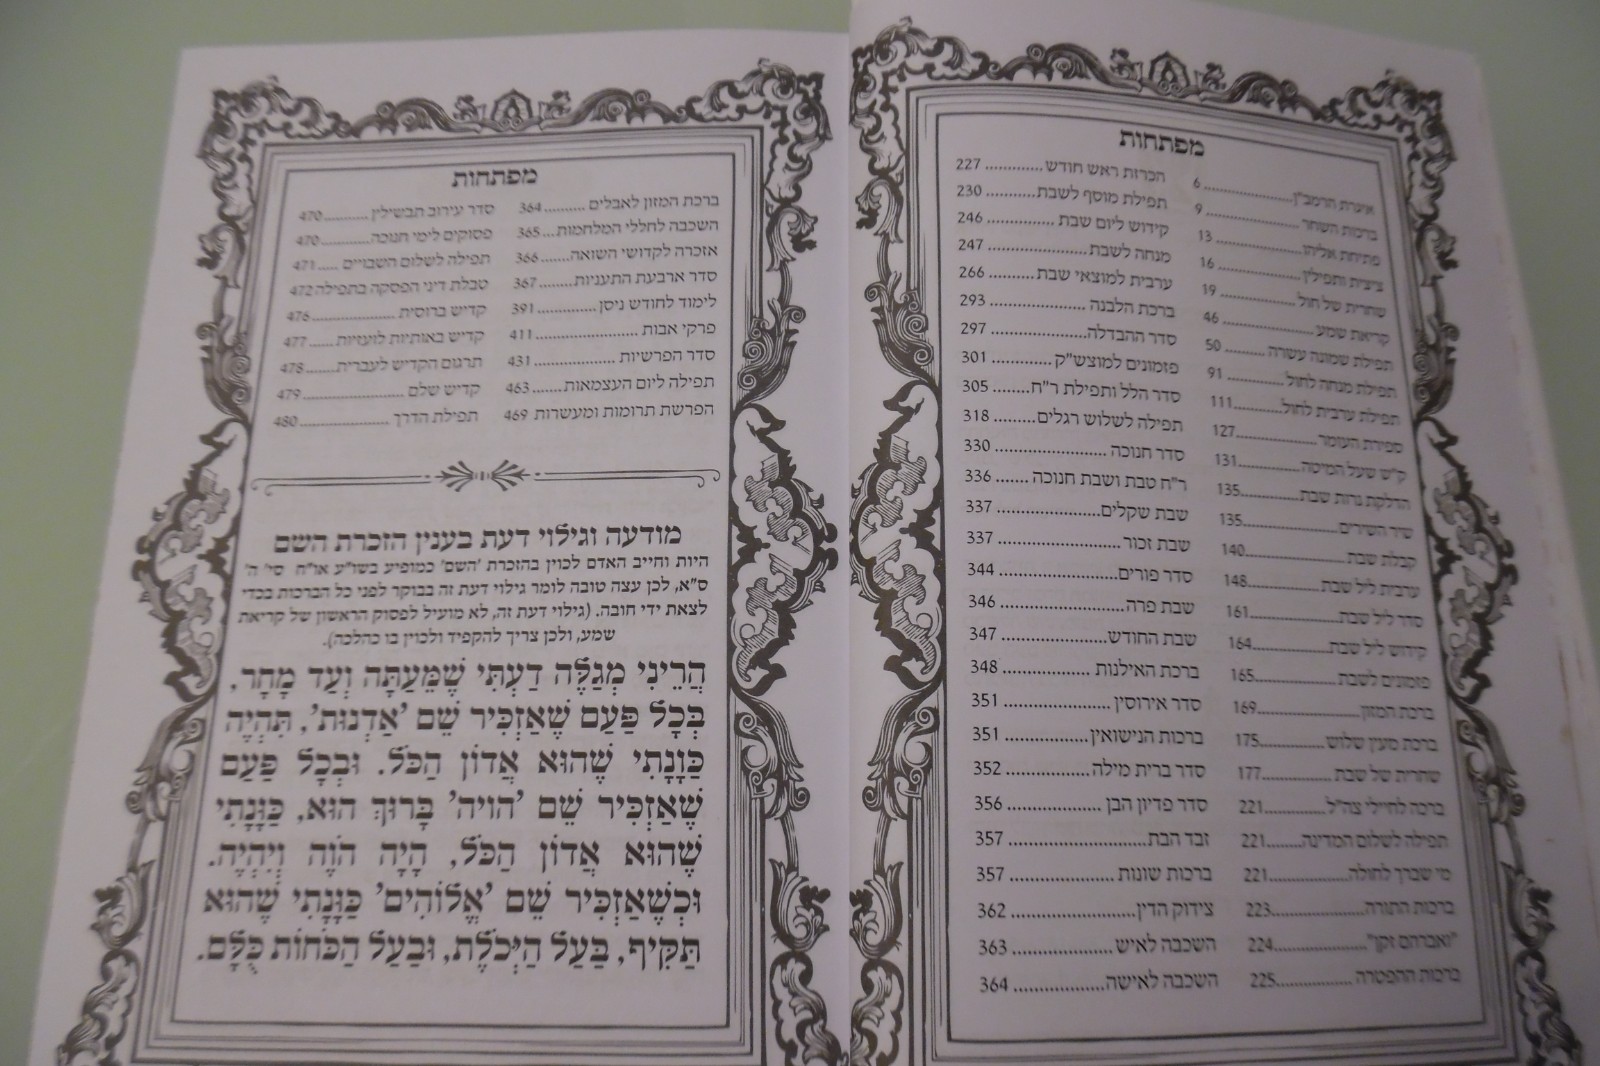 מפתחות
איגרת הרמב"ן.................... 6
ברכות השחר .................... 9
פתיחת אליהו .................... 13
ציצית ותפילין .................... 16
שחרית של חול .................... 19
קריאת שמע .................... 46
תפילת שמונה עשרה .......... 50
תפילת מנחה לחול............... 91
תפילת ערבית לחול............. 111
ספירת העומר .................... 127
ק"ש שעל המיטה ............... 131
הדלקת נרות שבת .............. 135
שיר השירים ...................... 135
קבלת שבת ....................... 140
ערבית ליל שבת ................. 148
סדר ליל שבת.................... 161
קידוש ליל שבת ................. 164
פזמונים לשבת .................. 165
ברכת המזון...................... 169
ברכת מעין שלוש ............... 175
שחרית של שבת ................ 177
ברכה לחיילי צה"ל ............. 221
תפילה לשלום המדינה......... 221
מי שברך לחולה................. 221
ברכות התורה.................... 223
"ואברהם זקן".................... 224
ברכות ההפטרה ................. 225
הכרזת ראש חודש ............. 227
תפילת מוסף לשבת............ 230
קידוש ליום שבת ............... 246
מנחה לשבת..................... 247
ערבית למוצאי שבת ........... 266
ברכת הלבנה .................... 293
סדר ההבדלה.................... 297
פזמונים למוצש"ק .............. 301
סדר הלל ותפילת ר"ח......... 305
תפילה לשלוש רגלים.......... 318
סדר חנוכה ....................... 330
ר"ח טבת ושבת חנוכה ....... 336
שבת שקלים..................... 337
שבת זכור ........................ 337
סדר פורים....................... 344
שבת פרה ........................ 346
שבת החודש .................... 347
ברכת האילנות .................. 348
סדר אירוסין .................... 351
ברכות הנישואין................ 351
סדר ברית מילה................ 352
סדר פדיון הבן ................. 356
זבד הבת ......................... 357
ברכות שונות ................... 357
צידוק הדין....................... 362
השכבה לאיש ................... 363
השכבה לאישה................. 364
מפתחות
ברכת המזון לאבלים .......... 364
השכבה לחללי המלחמות... 365
אזכרה לקדושי השואה....... 366
סדר ארבעת התעניות ........ 367
לימוד לחודש ניסן ............. 391
פרקי אבות ...................... 411
סדר הפרשיות .................. 431
תפילה ליום העצמאות....... 463
הפרשת תרומות ומעשרות 469
סדר עירוב תבשילין .......... 470
פסוקים לימי חנוכה........... 470
תפילה לשלום השבויים ..... 471
טבלת דיני הפסקה בתפילה 472
קדיש ברוסית ................... 476
קדיש באותיות לועזיות ...... 477
תרגום הקדיש לעברית....... 478
קדיש שלם ...................... 479
תפילת הדרך .................... 480
מודעה וגילוי דעת בענין הזכרת השם
היות וחייב האדם לכוין בהזכרת 'השם' כמופיע בשו"ע או"ח סי' ה'
ס"א, לכן עצה טובה לומר גילוי דעת זה בבוקר לפני כל הברכות בכדי
לצאת ידי חובה. (גילוי דעת זה, לא מועיל לפסוק הראשון של קריאת
שמע, ולכן צריך להקפיד ולכוין בו כהלכה).
הֲרֵינִי מְגַלֶּה דַעְתִּי שֶׁמֵּעַתָּה וְעַד מָחָר,
בְּכָל פַּעַם שֶׁאַזְכִּיר שֵׁם 'אַדְנוּת', תִּהְיֶה
כַּוָּנָתִי שֶׁהוּא אֲדוֹן הַכֹּל. וּבְכָל פַּעַם
שֶׁאַזְכִּיר שֵׁם 'הויה' בָּרוּךְ הוּא, כַּוָּנָתִי
שֶׁהוּא אֲדוֹן הַכֹּל, הָיָה הֹוֶה וְיִהְיֶה.
וּכְשֶׁאַזְכִּיר שֵׁם 'אֱלֹוֹהִים' כַּוָּנָתִי שֶׁהוּא
תַּקִּיף, בַּעַל הַיְּכֹלֶת, וּבַעַל הַכֹּחוֹת כֻּלָּם.